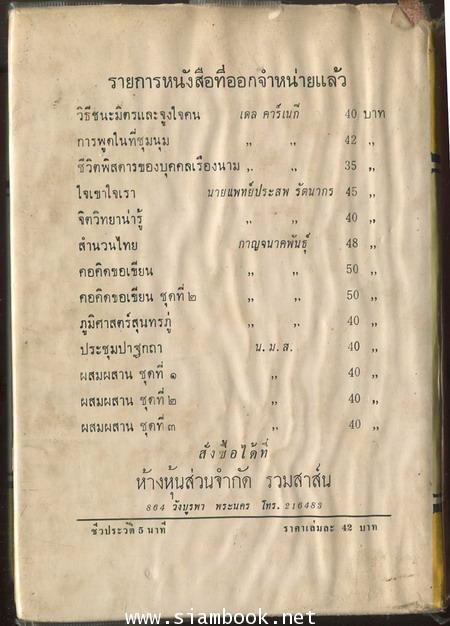 รายการหนังสือที่ออกจำหน่ายแล้ว
วิธีชนะมิตรและจูงใจคน เดล คาร์เนกี 40 บาท
การพูดในที่ชุมนุม ,, ,, 42 ,,
ชีวิตพิสดารของบุคคลเรืองนาม ,, ,, 35 ,,
ใจเขาใจเรา นายแพทย์ประสพ รัตนากร 45 ,,
จิตวิทยาน่ารู้ ,, ,, 40 ,,
สำนวนไทย กาญจนาคพันธุ์ 48 ,,
คอคิดขอเขียน ,, ,, 50 ,,
คอคิดขอเขียน ชุดที่ ๒ ,, ,, 50 ,,
ภูมิศาสตร์สุนทรภู่ ,, ,, 40 ,,
ประชุมปาฐกถา น.ม.ส. 40 ,,
ผสมผสาน ชุดที่ ๑ ,, 40 ,,
ผสมผสาน ชุดที่ ๒ ,, 40 ,,
ผสมผสาน ชุดที่ ๓ ,, 40 ,,
สั่งซื้อได้ที่
ห้างหุ้นส่วนจำกัด รวมสาส์น
864 วังบูรพา พระนคร โทร. 216483
ชีวประวัติ 5 นาที ราคาเล่มละ 42 บาท
www.siambook.net